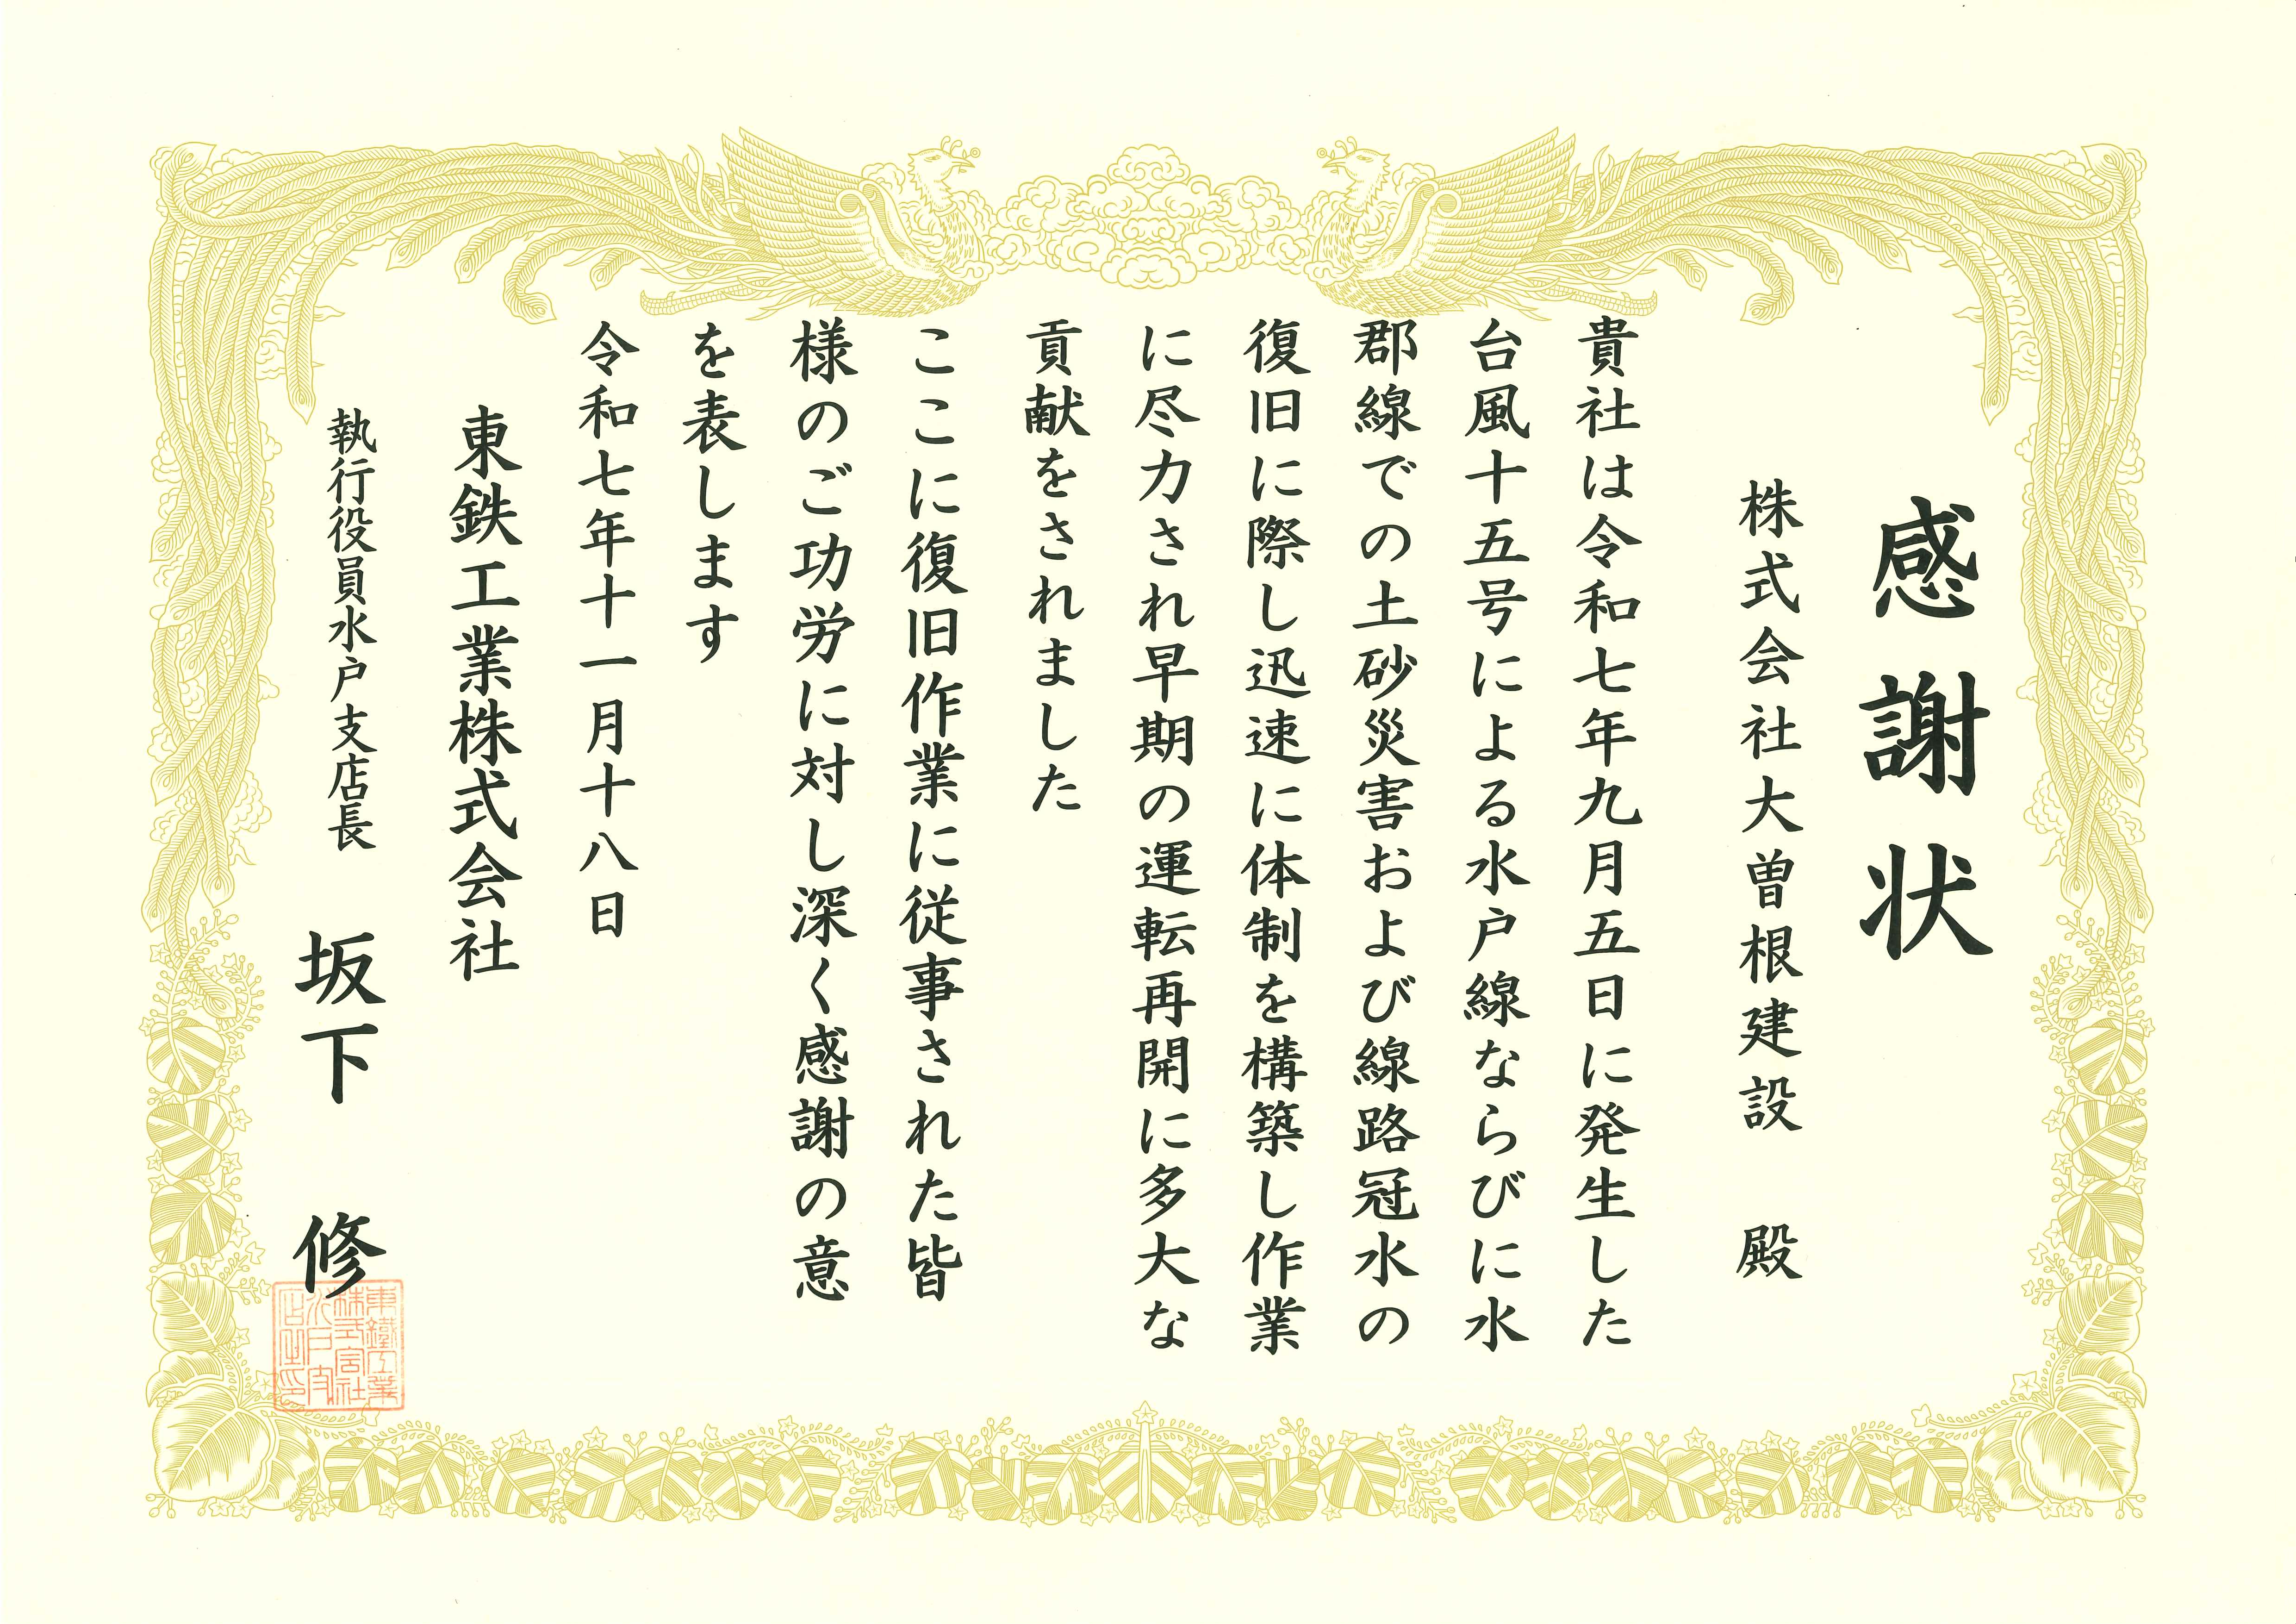 感謝状
株式会社大曽根建設 殿
貴社は令和七年九月五日に発生した
台風十五号による水戸線ならびに水
郡線での土砂災害および線路冠水の
復旧に際し迅速に体制を構築し作業
に尽力され早期の運転再開に多大な
貢献をされました
ここに復旧作業に従事された皆
様のご功労に対し深く感謝の意
を表します
令和七年十一月十八日
東鉄工業株式会社
執行役員水戸支店長 坂下 修
東鐵工業
株式会社
水戸支
店之印